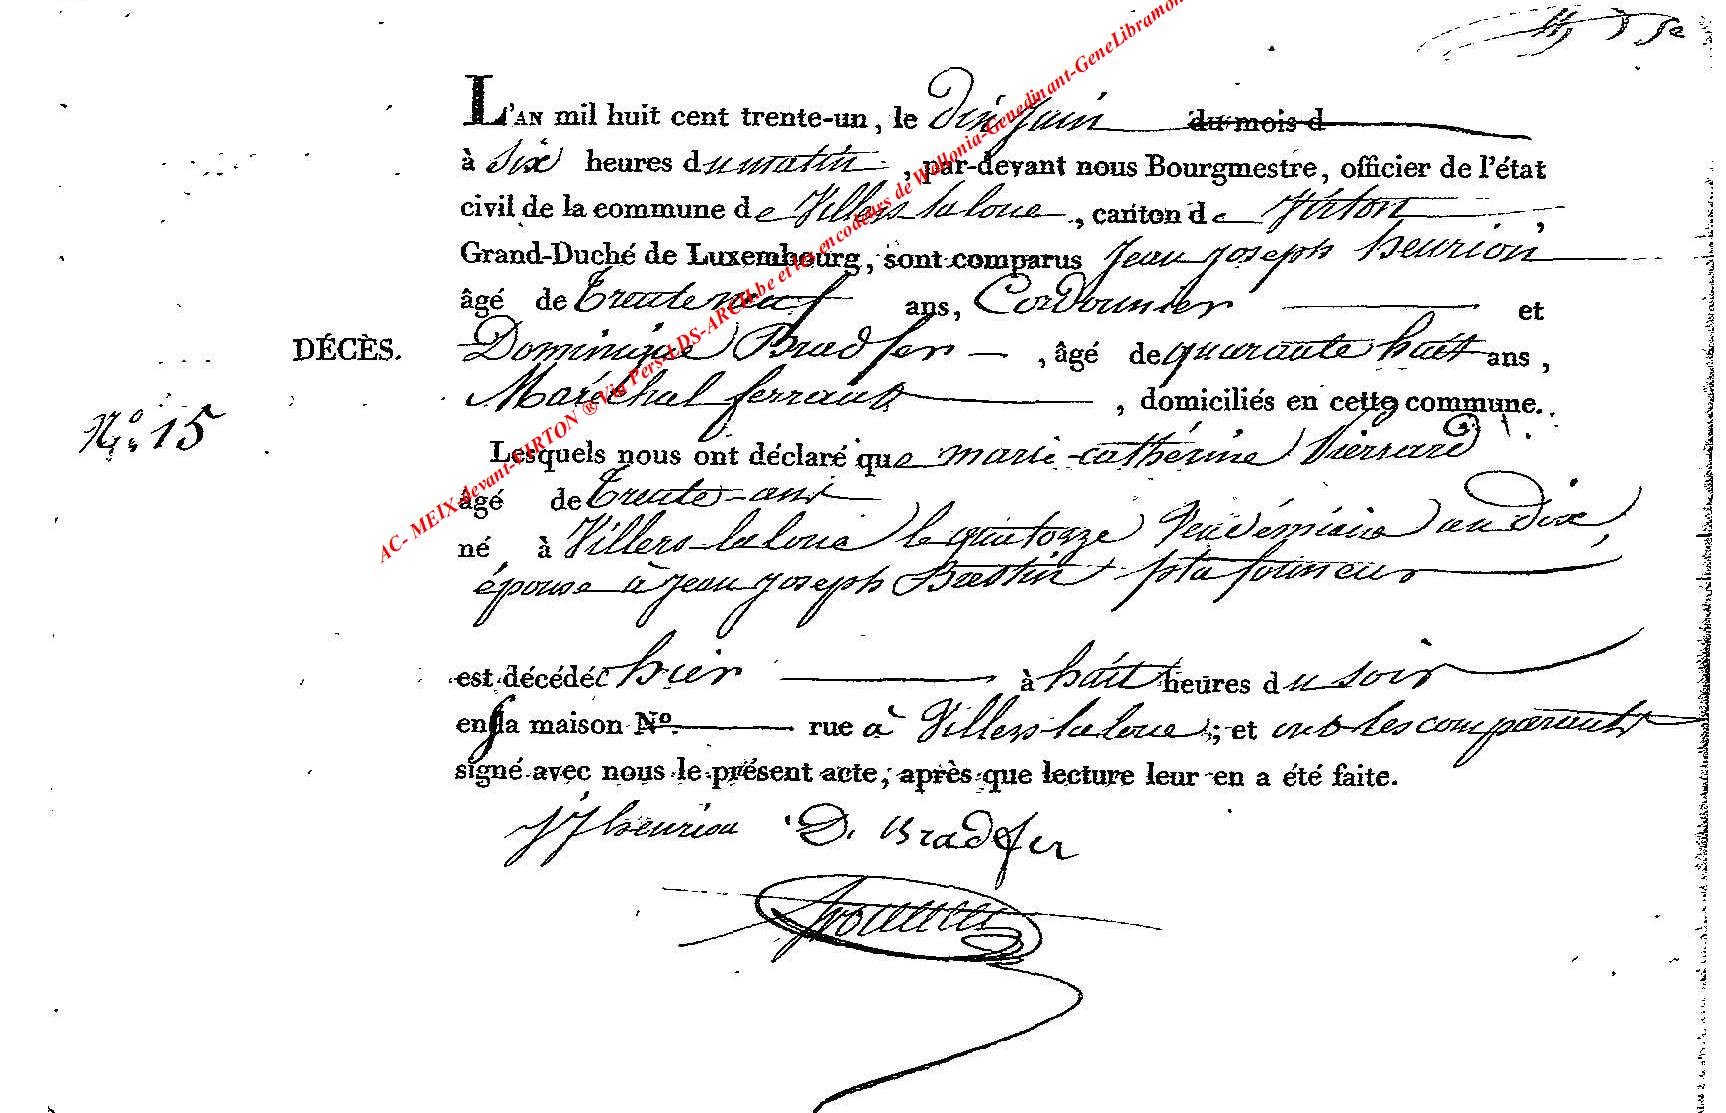 L'AN mil huit cent trente-un, le dix Juin du mois d
à Six heures du matin, par-devant nous Bourgmestre, officier de l'état
civil de la commune de Villers la loue, canton de Virton,
Grand-Duché de Luxembourg, sont comparus Jean Joseph heurion
âgé de Trente neuf ans, Cordonnier et
DÉCÈS. Dominique Bradfer, âgé de quarante huit ans,
Maréchal ferrant, domiciliés en cette commune.
N° 15
Lesquels nous ont déclaré que marie-cathérine Pierrard
âgé de Trente-ans
né à Villers-laloue le quatorze Vendémiaire an dix,
épouse à Jean Joseph Bastin plafonneur
est décédée hier à huit heures du soir
en sa maison N°. rue à Villers-laloue; et ont les comparants
signé avec nous le présent acte, après que lecture leur en a été faite.
JJheurion D. Bradfer
AC- MEIX-devant-VIRTON ® Via Pers-LDS-ARCH.be et les encodeurs de Wallonia-Genedinant-GeneLibramon